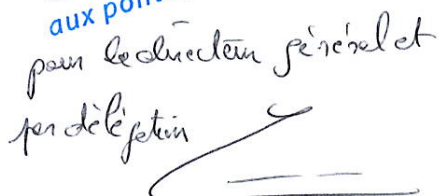 aux
pour le directeur général et
par délégation